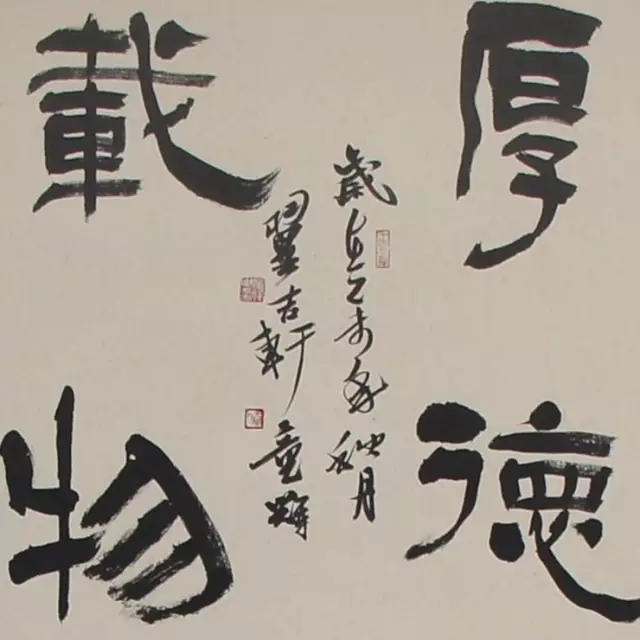 厚德
載物
歲在乙未年秋月
翼吉軒童